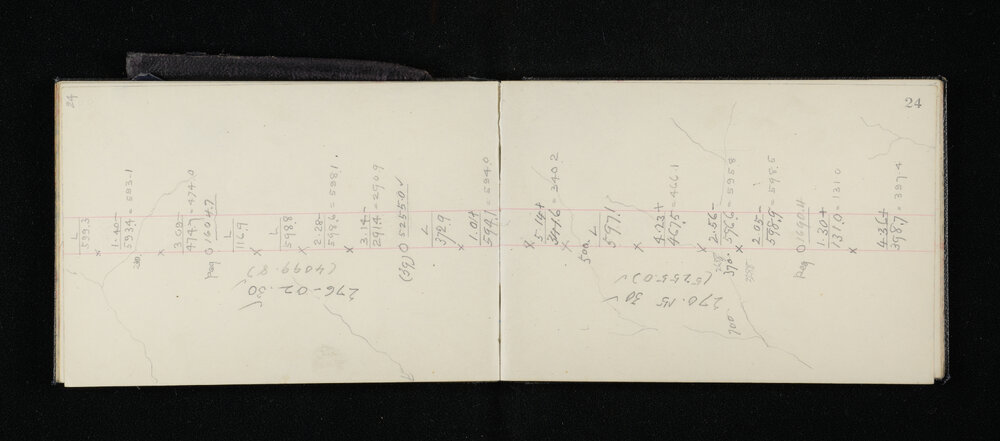 24
L
599.3
x
1.40-
593.4 = 593.1
30
x
3.60-
474.7 = 474.0
peg O 1604.7
L
1169
x
x
L
598.8
x
2.28-
598.6 = 598.1
x
3.14-
291.4 = 290.9
(39) O 5255.0 ✓
L
372.9
x
1.04+
594.1 = 594.0
276-02.30 ✓
(4099.8)
24
x
5.14+
341.6 = 340.2
x
500.
L
597.1
x
4.23+
467.5 = 466.1
x
2.56-
596.6 = 595.8
370.
x
2.05-
598.9 = 598.5
peg O 1690.4
1.30+
131.0 = 131.0
x
4.36+
398.7 = 397.4
270.15 30 ✓
(5255.0) ✓
700